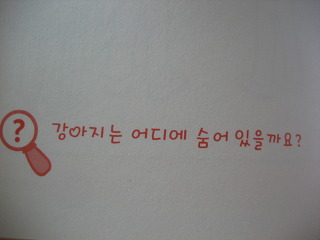 ?
강아지는 어디에 숨어 있을까요?